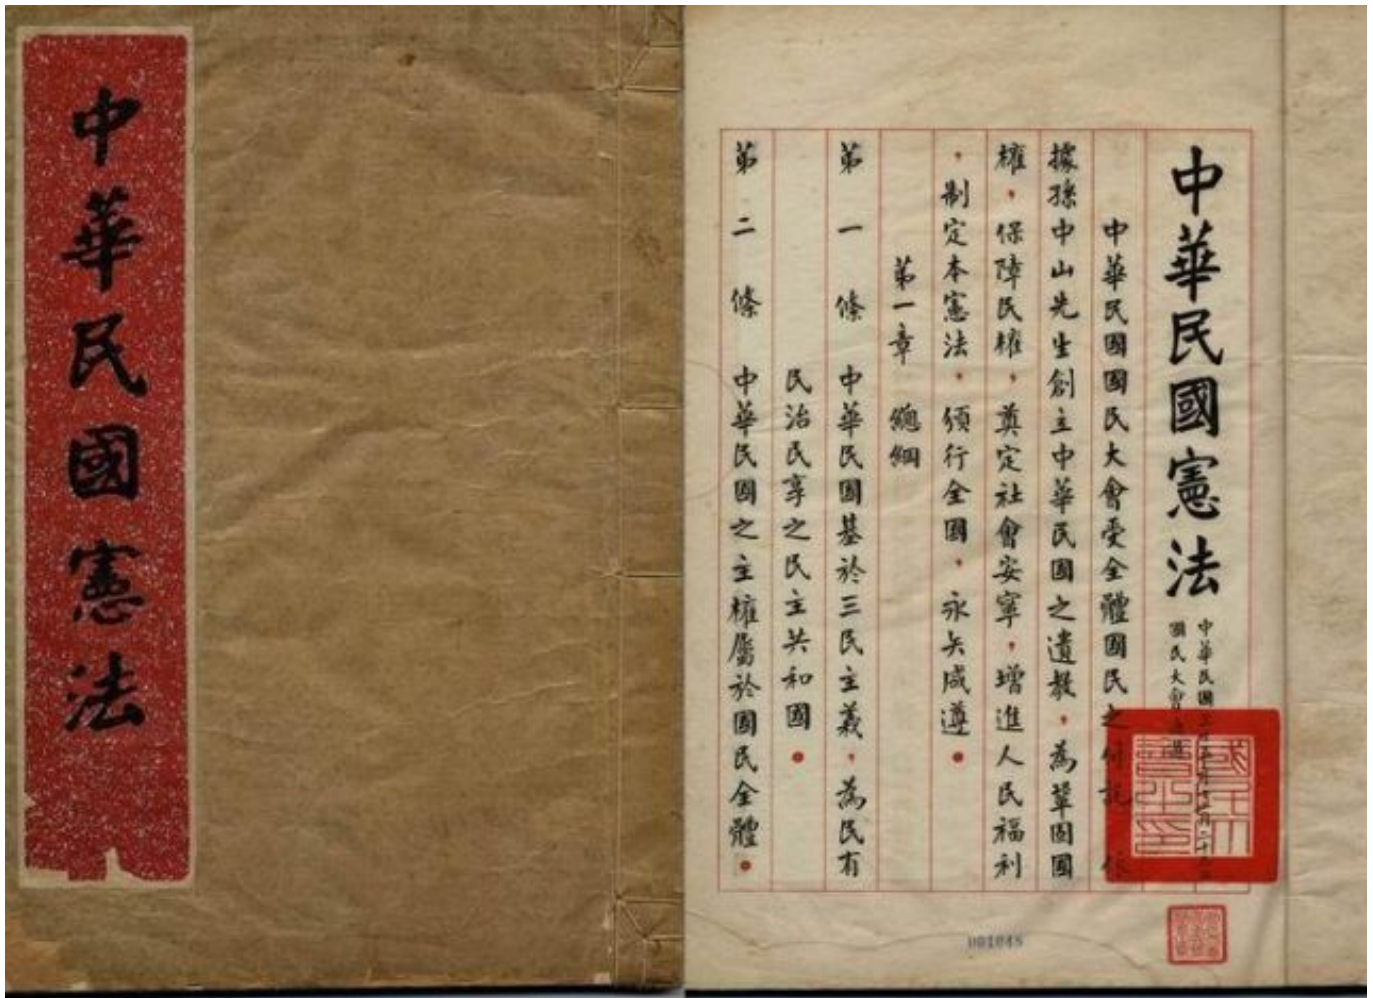 中華民國憲法
中華民國憲法
中華民國三十五年十二月二十
國民大會通過
中華民國國民大會受全體國民之付託，依
據孫中山先生創立中華民國之遺教，為鞏固國
權，保障民權，奠定社會安寧，增進人民福利
，制定本憲法，頒行全國，永矢咸遵。
第一章 總綱
第一條 中華民國基於三民主義，為民有
民治民享之民主共和國。
第二條 中華民國之主權屬於國民全體。
國民大會之印